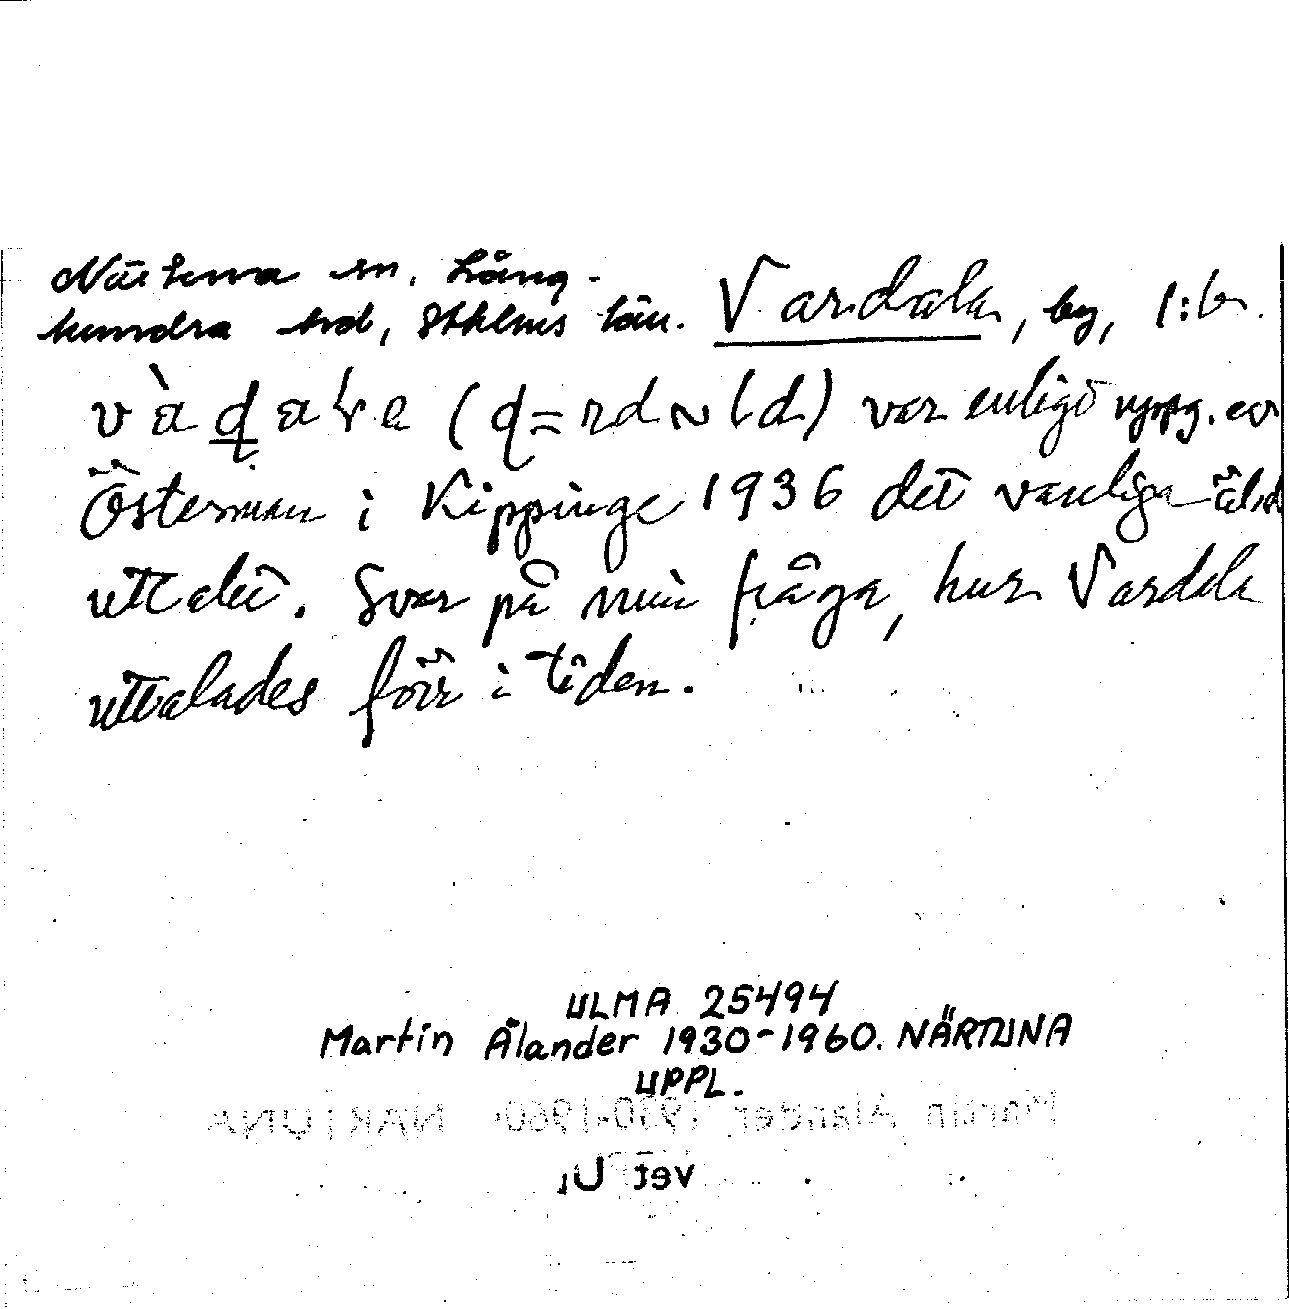 Närtuna sn. Lång-
hundra hd, Sthlms län. Vardala, by, 1:6.
vàdaɽa (d = rd ~ ld) var enligt uppg. av
Österman i Kippinge 1936 det vanliga äldr
uttalet. Svar på min fråga, hur Vardala
uttalades förr i tiden.
ULMA 25494
Martin Ålander 1930-1960. NÄRTUNA
UPPL.
Martin Ålander 1930-1960. NÄRTUNA